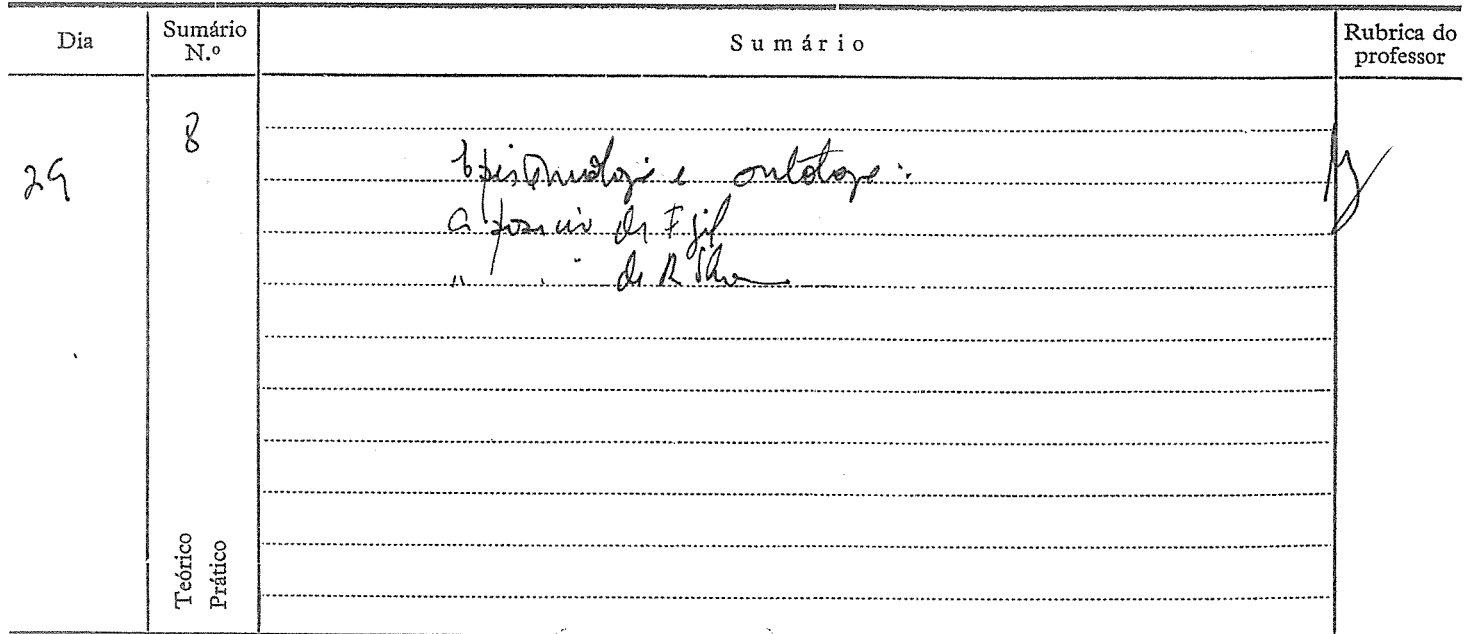 Dia
Sumário N.º
Sumário
Rubrica do professor
29
8
Epistemologia e ontologia:
a posição de F. Gil
" " de R. Thom
Teórico
Prático